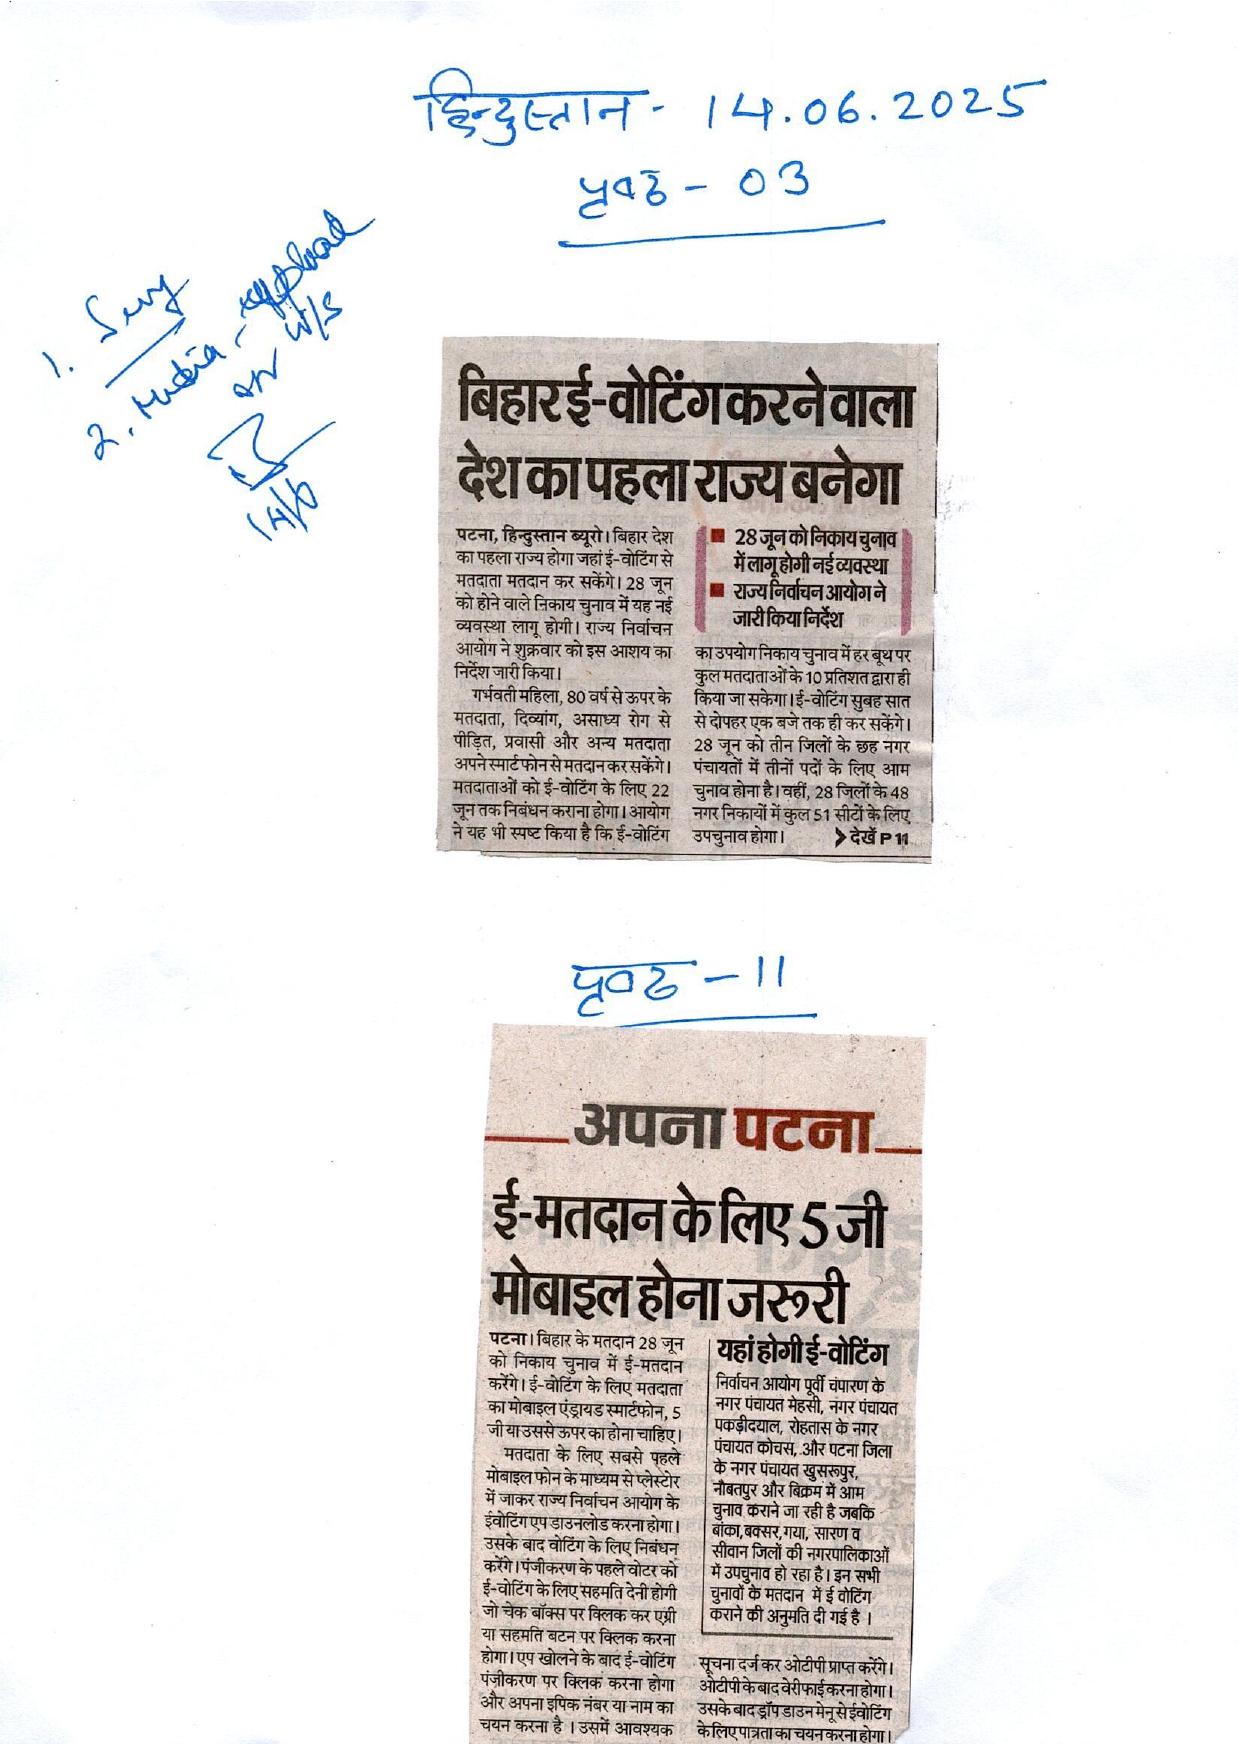 हिन्दुस्तान - 14.06.2025
पृष्ठ - 03
1.
2. Media - upload
on W/S
14/6
बिहार ई-वोटिंग करने वाला
देश का पहला राज्य बनेगा
पटना, हिन्दुस्तान ब्यूरो। बिहार देश
का पहला राज्य होगा जहां ई-वोटिंग से
मतदाता मतदान कर सकेंगे। 28 जून
को होने वाले निकाय चुनाव में यह नई
व्यवस्था लागू होगी। राज्य निर्वाचन
आयोग ने शुक्रवार को इस आशय का
निर्देश जारी किया।
गर्भवती महिला, 80 वर्ष से ऊपर के
मतदाता, दिव्यांग, असाध्य रोग से
पीड़ित, प्रवासी और अन्य मतदाता
अपने स्मार्ट फोन से मतदान कर सकेंगे।
मतदाताओं को ई-वोटिंग के लिए 22
जून तक निबंधन कराना होगा। आयोग
ने यह भी स्पष्ट किया है कि ई-वोटिंग
28 जून को निकाय चुनाव
में लागू होगी नई व्यवस्था
राज्य निर्वाचन आयोग ने
जारी किया निर्देश
का उपयोग निकाय चुनाव में हर बूथ पर
कुल मतदाताओं के 10 प्रतिशत द्वारा ही
किया जा सकेगा। ई-वोटिंग सुबह सात
से दोपहर एक बजे तक ही कर सकेंगे।
28 जून को तीन जिलों के छह नगर
पंचायतों में तीनों पदों के लिए आम
चुनाव होना है। वहीं, 28 जिलों के 48
नगर निकायों में कुल 51 सीटों के लिए
उपचुनाव होगा। देखें P 11
पृष्ठ - 11
अपना पटना
ई-मतदान के लिए 5 जी
मोबाइल होना जरूरी
पटना। बिहार के मतदान 28 जून
को निकाय चुनाव में ई-मतदान
करेंगे। ई-वोटिंग के लिए मतदाता
का मोबाइल एंड्रायड स्मार्टफोन, 5
जी या उससे ऊपर का होना चाहिए।
मतदाता के लिए सबसे पहले
मोबाइल फोन के माध्यम से प्लेस्टोर
में जाकर राज्य निर्वाचन आयोग के
ईवोटिंग एप डाउनलोड करना होगा।
उसके बाद वोटिंग के लिए निबंधन
करेंगे। पंजीकरण के पहले वोटर को
ई-वोटिंग के लिए सहमति देनी होगी
जो चेक बॉक्स पर क्लिक कर एग्री
या सहमति बटन पर क्लिक करना
होगा। एप खोलने के बाद ई-वोटिंग
पंजीकरण पर क्लिक करना होगा
और अपना इपिक नंबर या नाम का
चयन करना है । उसमें आवश्यक
यहां होगी ई-वोटिंग
निर्वाचन आयोग पूर्वी चंपारण के
नगर पंचायत मेहसी, नगर पंचायत
पकड़ीदयाल, रोहतास के नगर
पंचायत कोचस, और पटना जिला
के नगर पंचायत खुसरूपुर,
नौबतपुर और बिक्रम में आम
चुनाव कराने जा रही है जबकि
बांका,बक्सर,गया, सारण व
सीवान जिलों की नगरपालिकाओं
में उपचुनाव हो रहा है। इन सभी
चुनावों के मतदान में ई वोटिंग
कराने की अनुमति दी गई है ।
सूचना दर्ज कर ओटीपी प्राप्त करेंगे।
ओटीपी के बाद वेरीफाई करना होगा।
उसके बाद ड्रॉप डाउन मेनू से ईवोटिंग
के लिए पात्रता का चयन करना होगा।